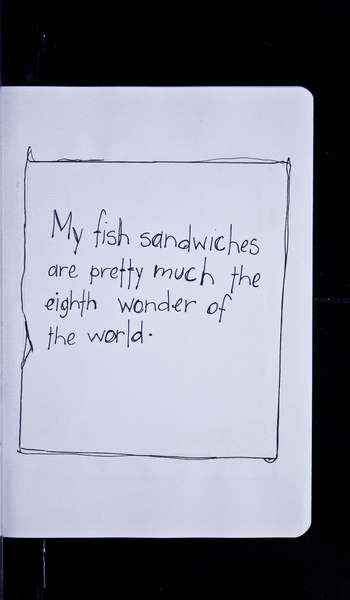 My fish sandwiches
are pretty much the
eighth wonder of
the world.